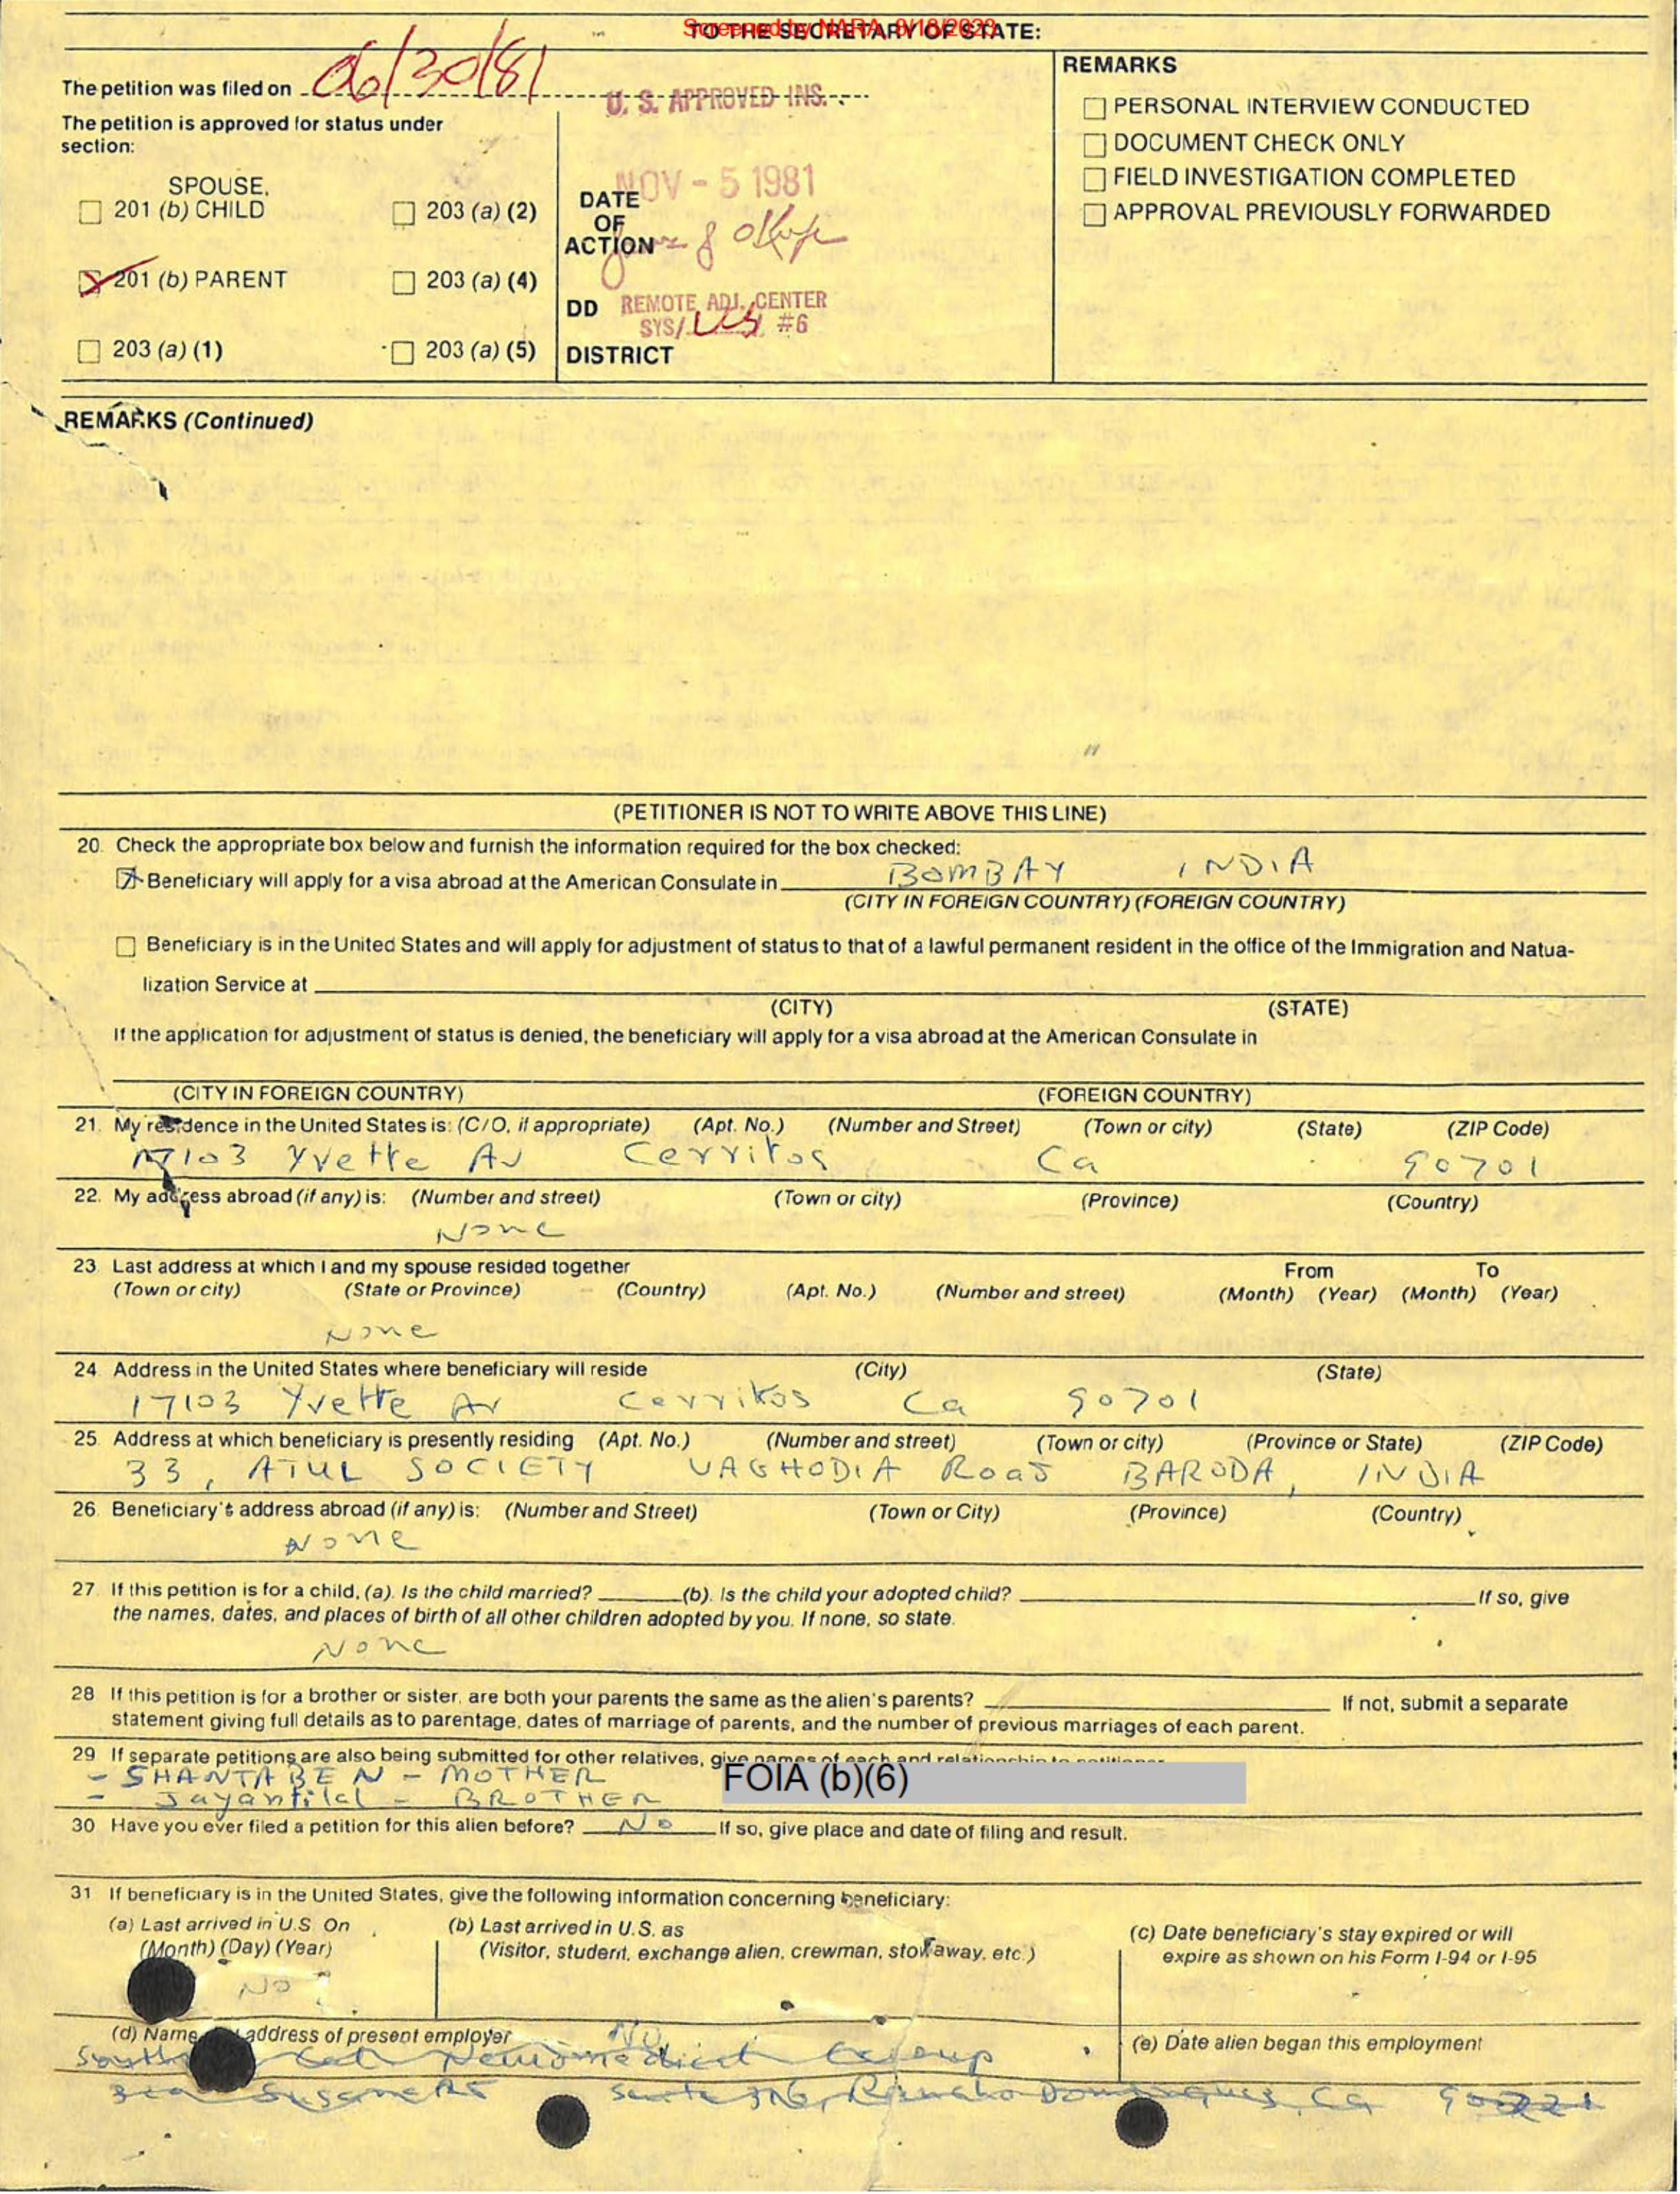 Screened by NARA, 8/18/2023
TO THE SECRETARY OF STATE:
The petition was filed on 06/30/81
U. S. APPROVED INS.
The petition is approved for status under
section:
SPOUSE,
201 (b) CHILD
203 (a) (2)
201 (b) PARENT
203 (a) (4)
203 (a) (1)
203 (a) (5)
NOV - 5 1981
DATE
OF
ACTION
DD REMOTE ADJ. CENTER
SYS/ #6
DISTRICT
REMARKS
PERSONAL INTERVIEW CONDUCTED
DOCUMENT CHECK ONLY
FIELD INVESTIGATION COMPLETED
APPROVAL PREVIOUSLY FORWARDED
REMARKS (Continued)
(PETITIONER IS NOT TO WRITE ABOVE THIS LINE)
20. Check the appropriate box below and furnish the information required for the box checked:
Beneficiary will apply for a visa abroad at the American Consulate in BOMBAY INDIA
(CITY IN FOREIGN COUNTRY) (FOREIGN COUNTRY)
Beneficiary is in the United States and will apply for adjustment of status to that of a lawful permanent resident in the office of the Immigration and Natua-
lization Service at
(CITY) (STATE)
If the application for adjustment of status is denied, the beneficiary will apply for a visa abroad at the American Consulate in
(CITY IN FOREIGN COUNTRY) (FOREIGN COUNTRY)
21. My residence in the United States is: (C/O, if appropriate) (Apt. No.) (Number and Street) (Town or city) (State) (ZIP Code)
17103 Yvette Av Cerritos Ca 90701
22. My address abroad (if any) is: (Number and street) (Town or city) (Province) (Country)
None
23. Last address at which I and my spouse resided together From To
(Town or city) (State or Province) (Country) (Apt. No.) (Number and street) (Month) (Year) (Month) (Year)
None
24. Address in the United States where beneficiary will reside (City) (State)
17103 Yvette Av Cerritos Ca 90701
25. Address at which beneficiary is presently residing (Apt. No.) (Number and street) (Town or city) (Province or State) (ZIP Code)
33, ATUL SOCIETY VAGHODIA Road BARODA, INDIA
26. Beneficiary's address abroad (if any) is: (Number and Street) (Town or City) (Province) (Country)
None
27. If this petition is for a child, (a). Is the child married? (b). Is the child your adopted child? If so, give
the names, dates, and places of birth of all other children adopted by you. If none, so state.
None
28 If this petition is for a brother or sister, are both your parents the same as the alien's parents? If not, submit a separate
statement giving full details as to parentage, dates of marriage of parents, and the number of previous marriages of each parent.
29 If separate petitions are also being submitted for other relatives, give names of each and relationship to petitioner
- SHANTABEN - MOTHER
FOIA (b)(6)
- Jayantilal - BROTHER
30 Have you ever filed a petition for this alien before? No If so, give place and date of filing and result.
31 If beneficiary is in the United States, give the following information concerning beneficiary:
(a) Last arrived in U.S On
(Month) (Day) (Year)
NO
(b) Last arrived in U.S. as
(Visitor, student, exchange alien, crewman, stowaway, etc.)
(c) Date beneficiary's stay expired or will
expire as shown on his Form I-94 or I-95
(d) Name address of present employer NO
(e) Date alien began this employment
Neuromedical Group
Rancho Dominguez, Ca 90221